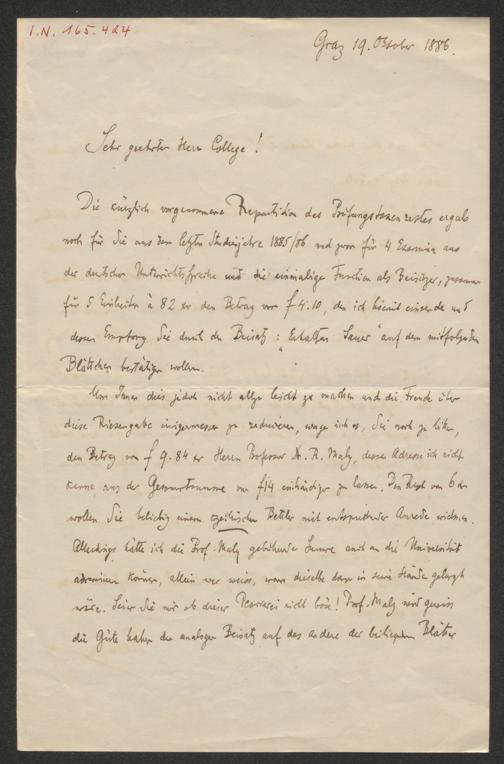 I.N. 165.424
Graz 19. October 1886.
Sehr geehrter Herr College!
Die kürzlich vorgenommene Repartition des Prüfungstaxenrestes ergab
noch für Sie aus dem letzten Studienjahre 1885/86 und zwar für 4 Examina aus
der deutschen Unterrichtssprache und die einmalige Function als Beisitzer, zusammen
für 5 Einheiten à 82 kr den Betrag von f 4.10, den ich hiemit einsende und
dessen Empfang Sie durch den Beisatz: "Erhalten Sauer" auf dem mitfolgenden
Blättchen bestätigen wollen.
Um Ihnen dies jedoch nicht allzu leicht zu machen und die Freude über
diese Riesengabe einigermassen zu reduciren, wage ich es, Sie noch zu bitten,
den Betrag von f 9.84 kr Herrn Professor Dr. R. Maly, dessen Adresse ich nicht
kenne aus der Gesammtsumme von f 14 einhändigen zu lassen. Den Rest von 6 kr
wollen Sie beliebig einem czechischen Bettler mit entsprechender Anrede widmen.
Allerdings hätte ich die Prof. Maly gebührende Summe auch an die Universität
adressiren können, allein wer weiss, wann dieselbe dann in seine Hände gelangt
wäre. Seien Sie mir ob dieser nicht böse! Prof. Maly wird gewiss
die Güte haben den analogen Beisatz auf das andere der beiliegenden Blätter